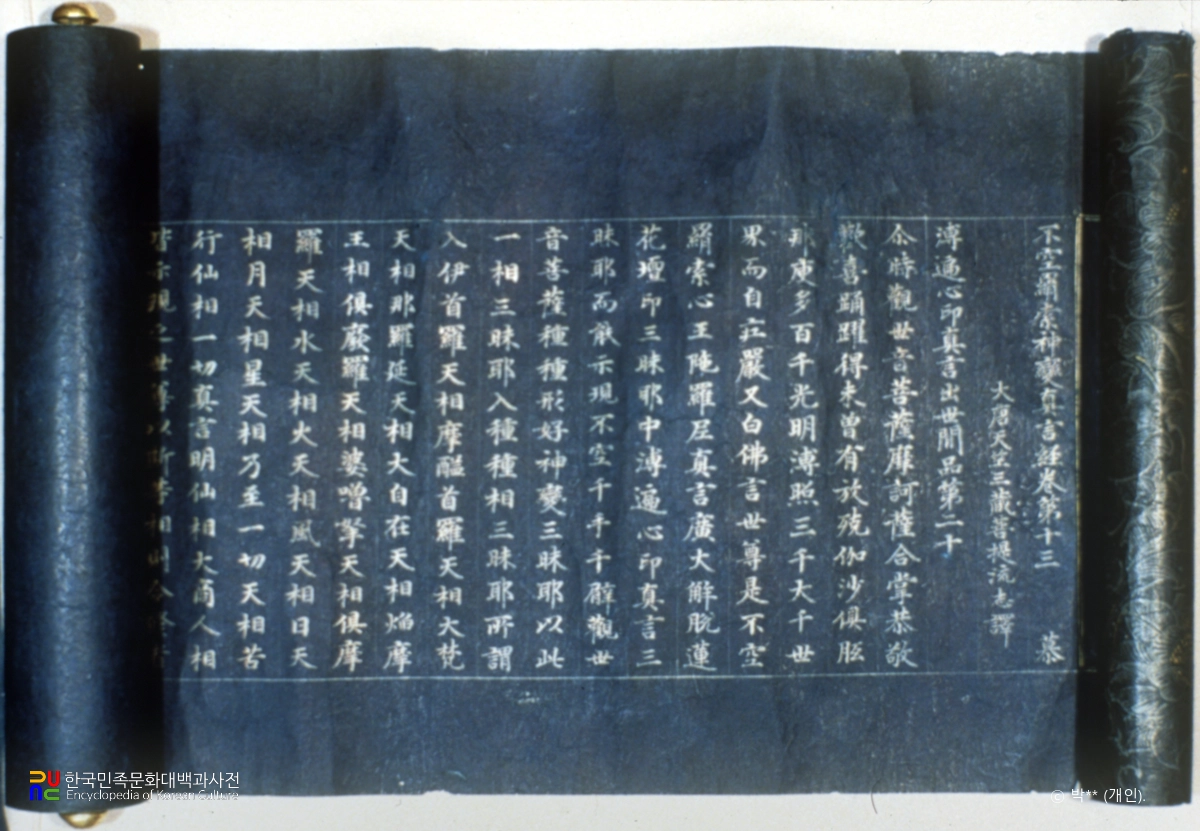 不空羂索神變真言經卷第十三 慕
大唐天竺三藏菩提流志譯
溥遍心印真言出世間品第二十
尒時觀世音菩薩摩訶薩合掌恭敬
歡喜踊躍得未曾有放殑伽沙俱胝
那庾多百千光明溥照三千大千世
界而自莊嚴又白佛言世尊是不空
羂索心王陁羅尼真言廣大解脫蓮
花壇印三昧耶中溥遍心印真言三
昧耶而能示現不空千手千臂觀世
音菩薩種種形好神變三昧耶以此
一相三昧耶入種種相三昧耶所謂
入伊首羅天相摩醯首羅天相大梵
天相那羅延天相大自在天相焰摩
王相俱廢羅天相婆嚕拏天相俱摩
羅天相水天相火天相風天相日天
相月天相星天相乃至一切天相苦
行仙相一切真言明仙相大商人相
皆示現之世尊以斯等相
한국민족문화대백과사전
Encyclopedia of Korean Culture
© 박** (개인).